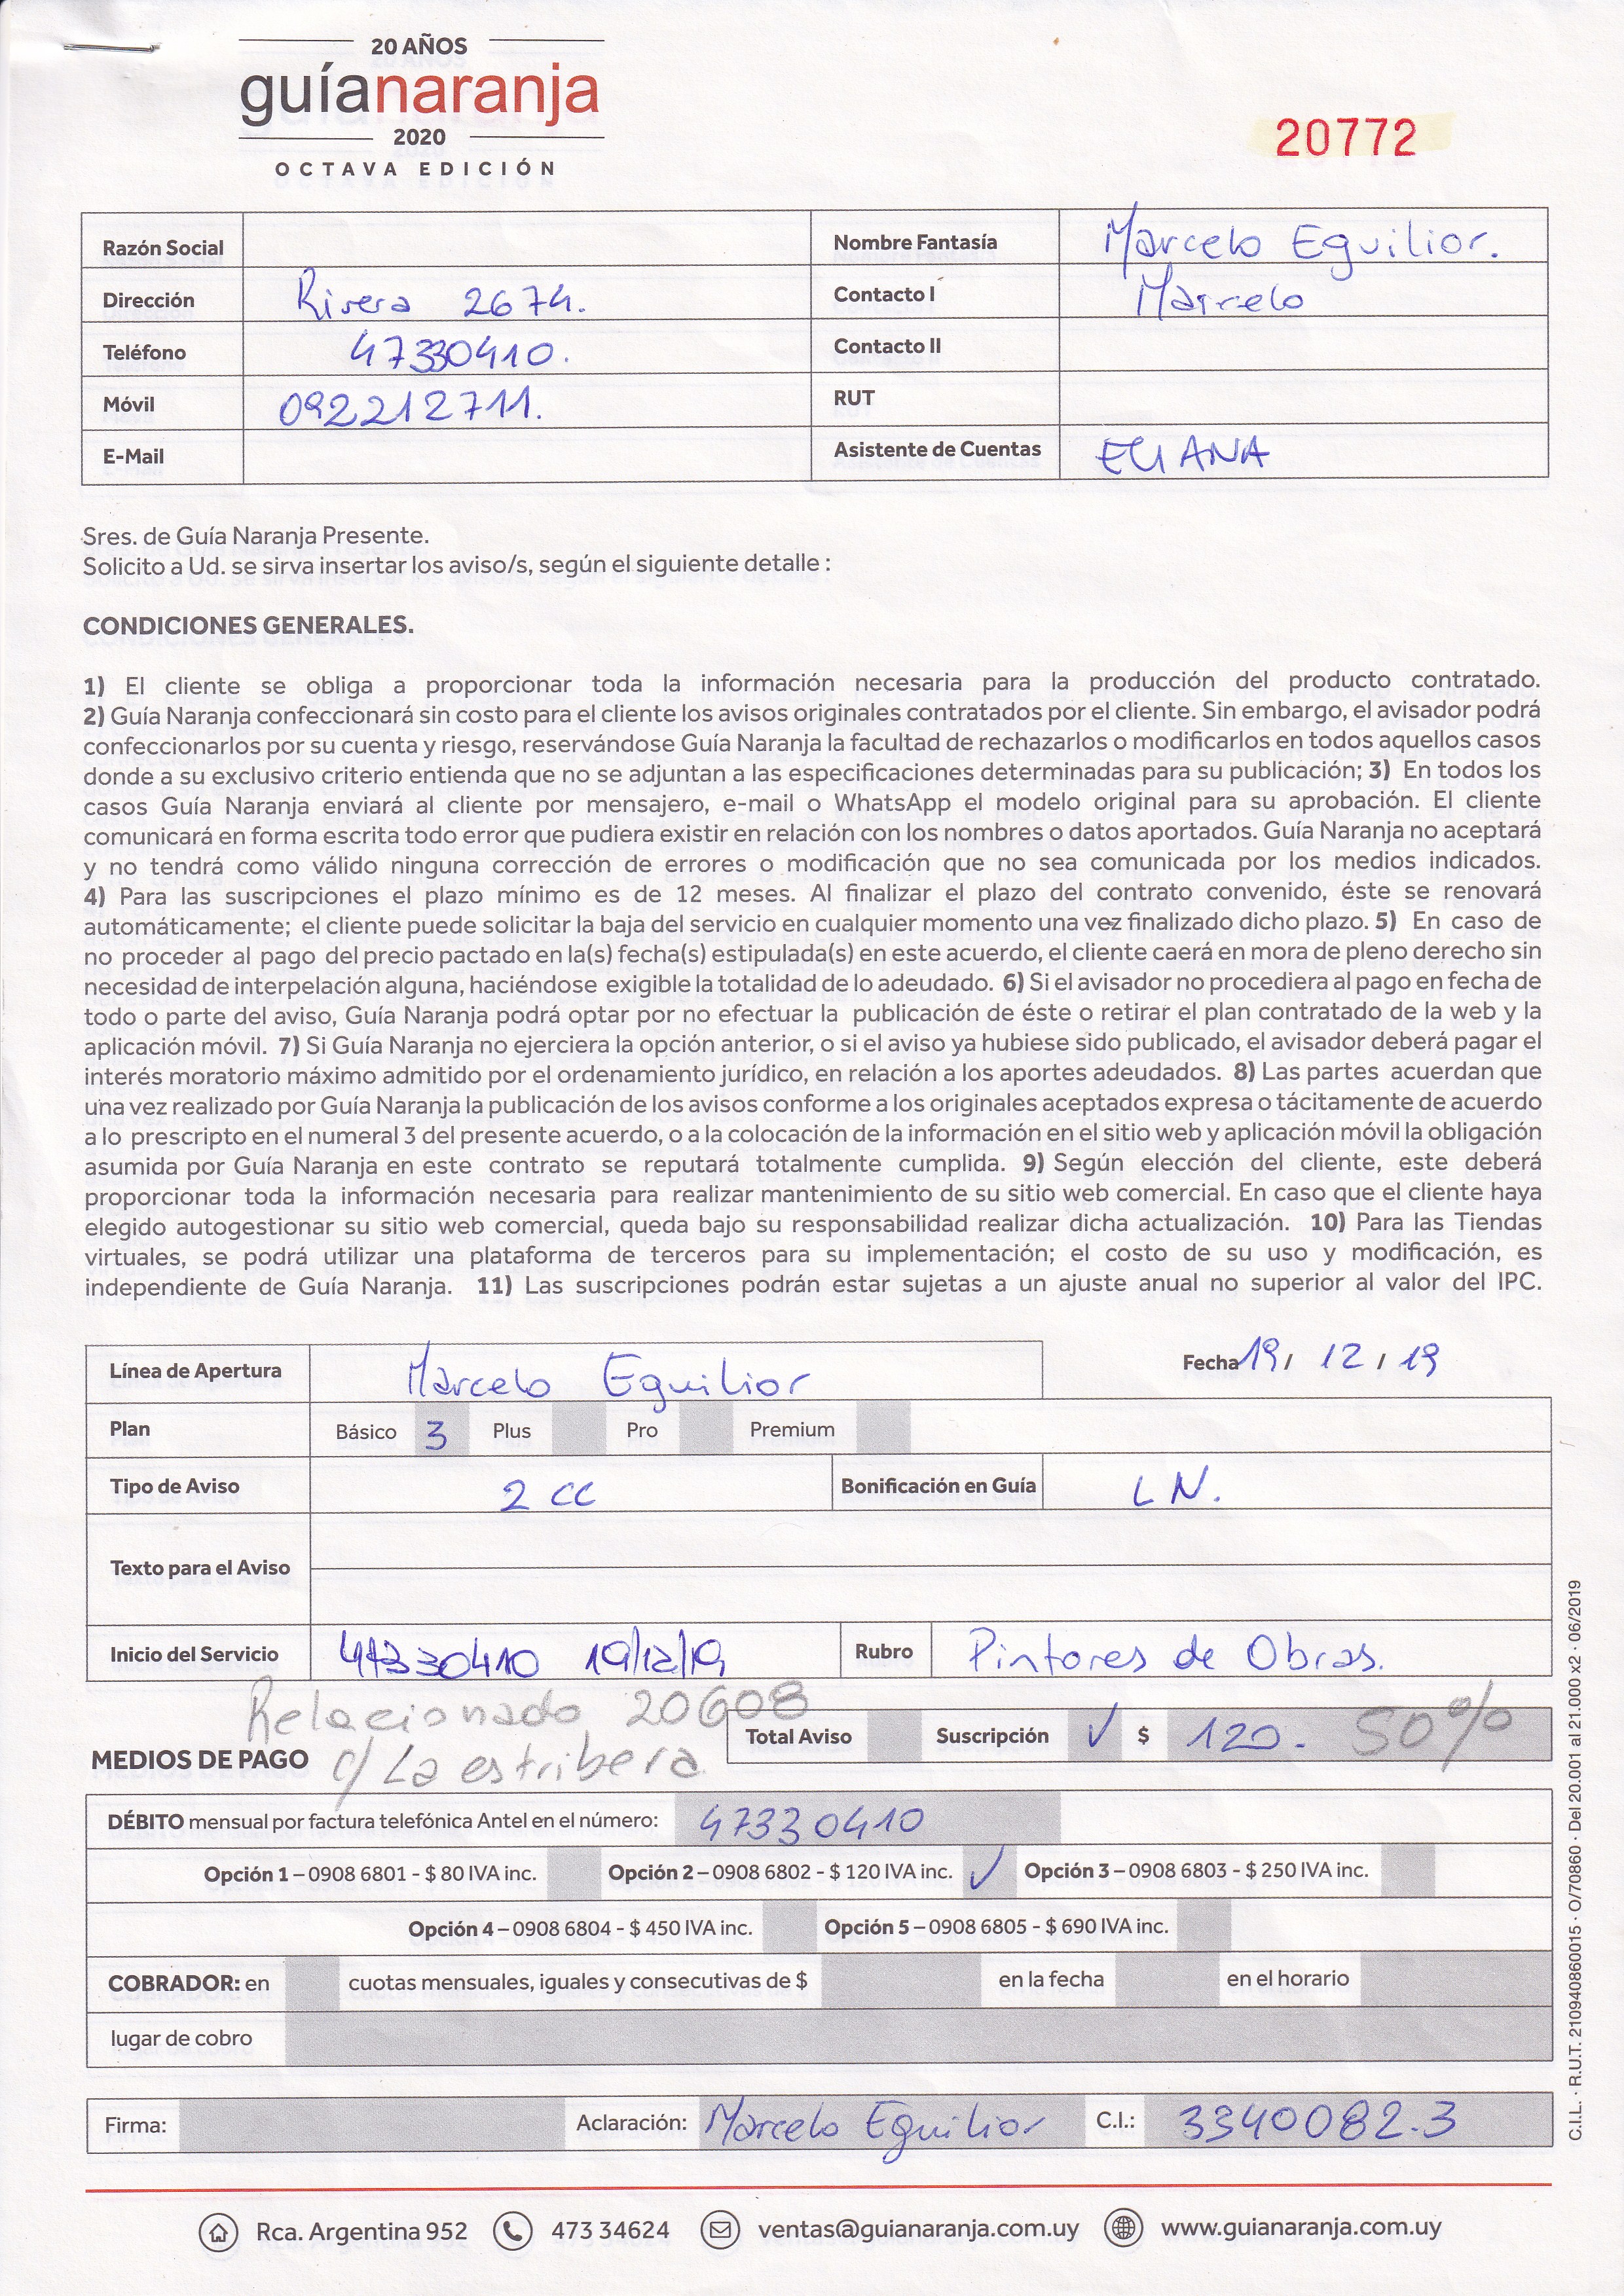 20 AÑOS
guíanaranja
2020
OCTAVA EDICIÓN
20772
Razón Social
Nombre Fantasía Marcelo Eguilior.
Dirección Rivera 2674.
Contacto I Marcelo
Teléfono 47330410.
Contacto II
Móvil 092212711.
RUT
E-Mail
Asistente de Cuentas ELIANA
Sres. de Guía Naranja Presente.
Solicito a Ud. se sirva insertar los aviso/s, según el siguiente detalle :
CONDICIONES GENERALES.
1) El cliente se obliga a proporcionar toda la información necesaria para la producción del producto contratado.
2) Guía Naranja confeccionará sin costo para el cliente los avisos originales contratados por el cliente. Sin embargo, el avisador podrá
confeccionarlos por su cuenta y riesgo, reservándose Guía Naranja la facultad de rechazarlos o modificarlos en todos aquellos casos
donde a su exclusivo criterio entienda que no se adjuntan a las especificaciones determinadas para su publicación; 3) En todos los
casos Guía Naranja enviará al cliente por mensajero, e-mail o WhatsApp el modelo original para su aprobación. El cliente
comunicará en forma escrita todo error que pudiera existir en relación con los nombres o datos aportados. Guía Naranja no aceptará
y no tendrá como válido ninguna corrección de errores o modificación que no sea comunicada por los medios indicados.
4) Para las suscripciones el plazo mínimo es de 12 meses. Al finalizar el plazo del contrato convenido, éste se renovará
automáticamente; el cliente puede solicitar la baja del servicio en cualquier momento una vez finalizado dicho plazo. 5) En caso de
no proceder al pago del precio pactado en la(s) fecha(s) estipulada(s) en este acuerdo, el cliente caerá en mora de pleno derecho sin
necesidad de interpelación alguna, haciéndose exigible la totalidad de lo adeudado. 6) Si el avisador no procediera al pago en fecha de
todo o parte del aviso, Guía Naranja podrá optar por no efectuar la publicación de éste o retirar el plan contratado de la web y la
aplicación móvil. 7) Si Guía Naranja no ejerciera la opción anterior, o si el aviso ya hubiese sido publicado, el avisador deberá pagar el
interés moratorio máximo admitido por el ordenamiento jurídico, en relación a los aportes adeudados. 8) Las partes acuerdan que
una vez realizado por Guía Naranja la publicación de los avisos conforme a los originales aceptados expresa o tácitamente de acuerdo
a lo prescripto en el numeral 3 del presente acuerdo, o a la colocación de la información en el sitio web y aplicación móvil la obligación
asumida por Guía Naranja en este contrato se reputará totalmente cumplida. 9) Según elección del cliente, este deberá
proporcionar toda la información necesaria para realizar mantenimiento de su sitio web comercial. En caso que el cliente haya
elegido autogestionar su sitio web comercial, queda bajo su responsabilidad realizar dicha actualización. 10) Para las Tiendas
virtuales, se podrá utilizar una plataforma de terceros para su implementación; el costo de su uso y modificación, es
independiente de Guía Naranja. 11) Las suscripciones podrán estar sujetas a un ajuste anual no superior al valor del IPC.
Línea de Apertura Marcelo Eguilior
Fecha 19/ 12 / 19
Plan Básico 3 Plus Pro Premium
Tipo de Aviso 2 CC Bonificación en Guía LN.
Texto para el Aviso
Inicio del Servicio 47330410 19/12/19 Rubro Pintores de Obras.
Relacionado 20608
c/ La estribera
Total Aviso Suscripción ✓ $ 120. 50%
MEDIOS DE PAGO
DÉBITO mensual por factura telefónica Antel en el número: 47330410
Opción 1 – 0908 6801 - $ 80 IVA inc. Opción 2 – 0908 6802 - $ 120 IVA inc. ✓ Opción 3 – 0908 6803 - $ 250 IVA inc.
Opción 4 – 0908 6804 - $ 450 IVA inc. Opción 5 – 0908 6805 - $ 690 IVA inc.
COBRADOR: en cuotas mensuales, iguales y consecutivas de $ en la fecha en el horario
lugar de cobro
Firma: Aclaración: Marcelo Eguilior C.I.: 3340082.3
Rca. Argentina 952 473 34624 ventas@guianaranja.com.uy www.guianaranja.com.uy
C.I.L. · R.U.T. 210940860015 · O/70860 · Del 20.001 al 21.000 x2 · 06/2019